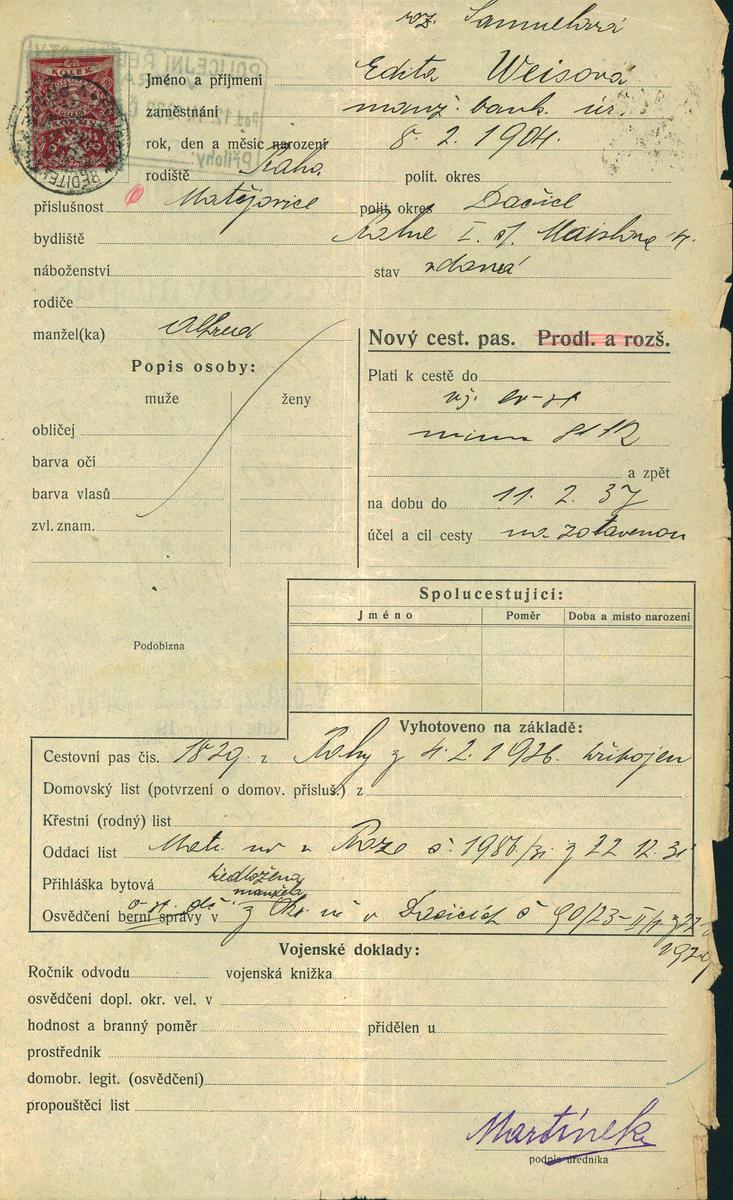 roz. Samuelová
KOLEK
Jméno a příjmení Edita Weisová
zaměstnání manž. bank. úř.
rok, den a měsíc narození 8. 2. 1904.
rodiště Praha polit. okres
příslušnost Matějovice polit. okres Dačice
bydliště Praha I.
náboženství stav vdaná
rodiče
manžel(ka) Alfred
Popis osoby:
muže ženy
obličej
barva očí
barva vlasů
zvl. znam.
Nový cest. pas. Prodl. a rozš.
Platí k cestě do
a zpět
na dobu do 11. 2. 37
účel a cíl cesty na zotavenou
Spolucestující:
Jméno Poměr Doba a místo narození
Podobizna
Vyhotoveno na základě:
Cestovní pas čís. 1829 z Prahy z 4. 2. 1926
Domovský list (potvrzení o domov. přísluš.) z
Křestní (rodný) list
Oddací list v Praze č. 1986/31 z 22 12. 31
Přihláška bytová předložena manžela
Osvědčení berní správy v v Dačicích č 90/23
Vojenské doklady:
Ročník odvodu vojenská knížka
osvědčení dopl. okr. vel. v
hodnost a branný poměr přidělen u
prostředník
domobr. legit. (osvědčení)
propouštěcí list
Martínek
podpis úředníka